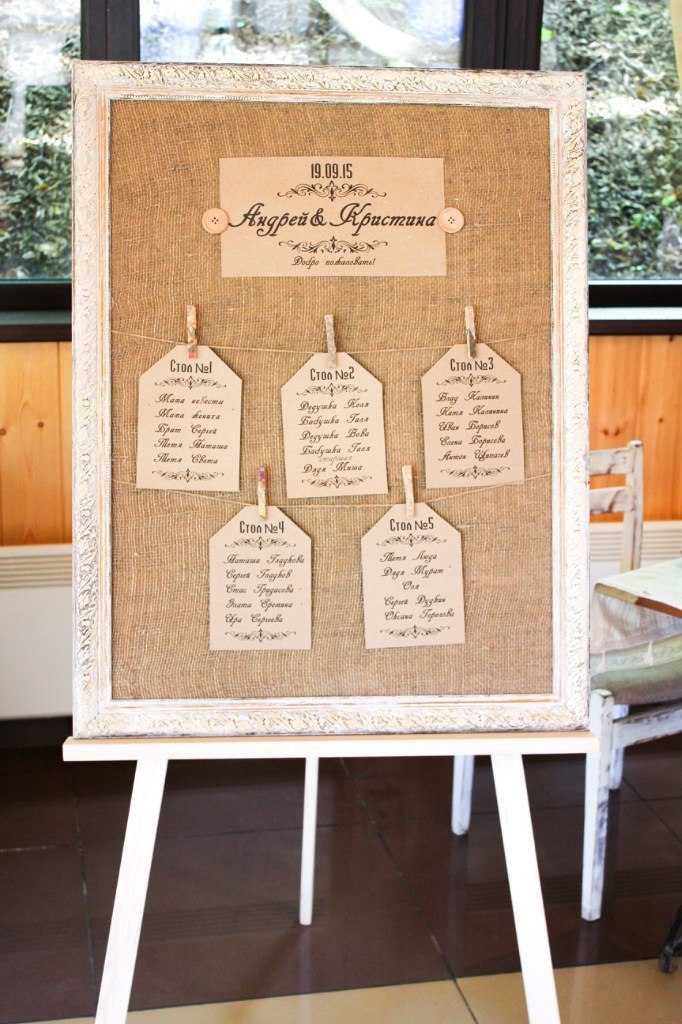 19.09.15
Андрей & Кристина
Добро пожаловать!
Стол №1
Мама невесты
Мама жениха
Брат Сергей
Тетя Наташа
Тетя Света
Стол №2
Дедушка Коля
Бабушка Галя
Дедушка Вова
Бабушка Галя
старшая
Дядя Миша
Стол №3
Влад Калинин
Катя Калинина
Иван Борисов
Елена Борисова
Антон
Стол №4
Наташа Гладкова
Сергей Гладков
Стас
Злата
Ира Сергеева
Стол №5
Тетя Люда
Дядя Мурат
Оля
Сергей Дудкин
Оксана Горелова